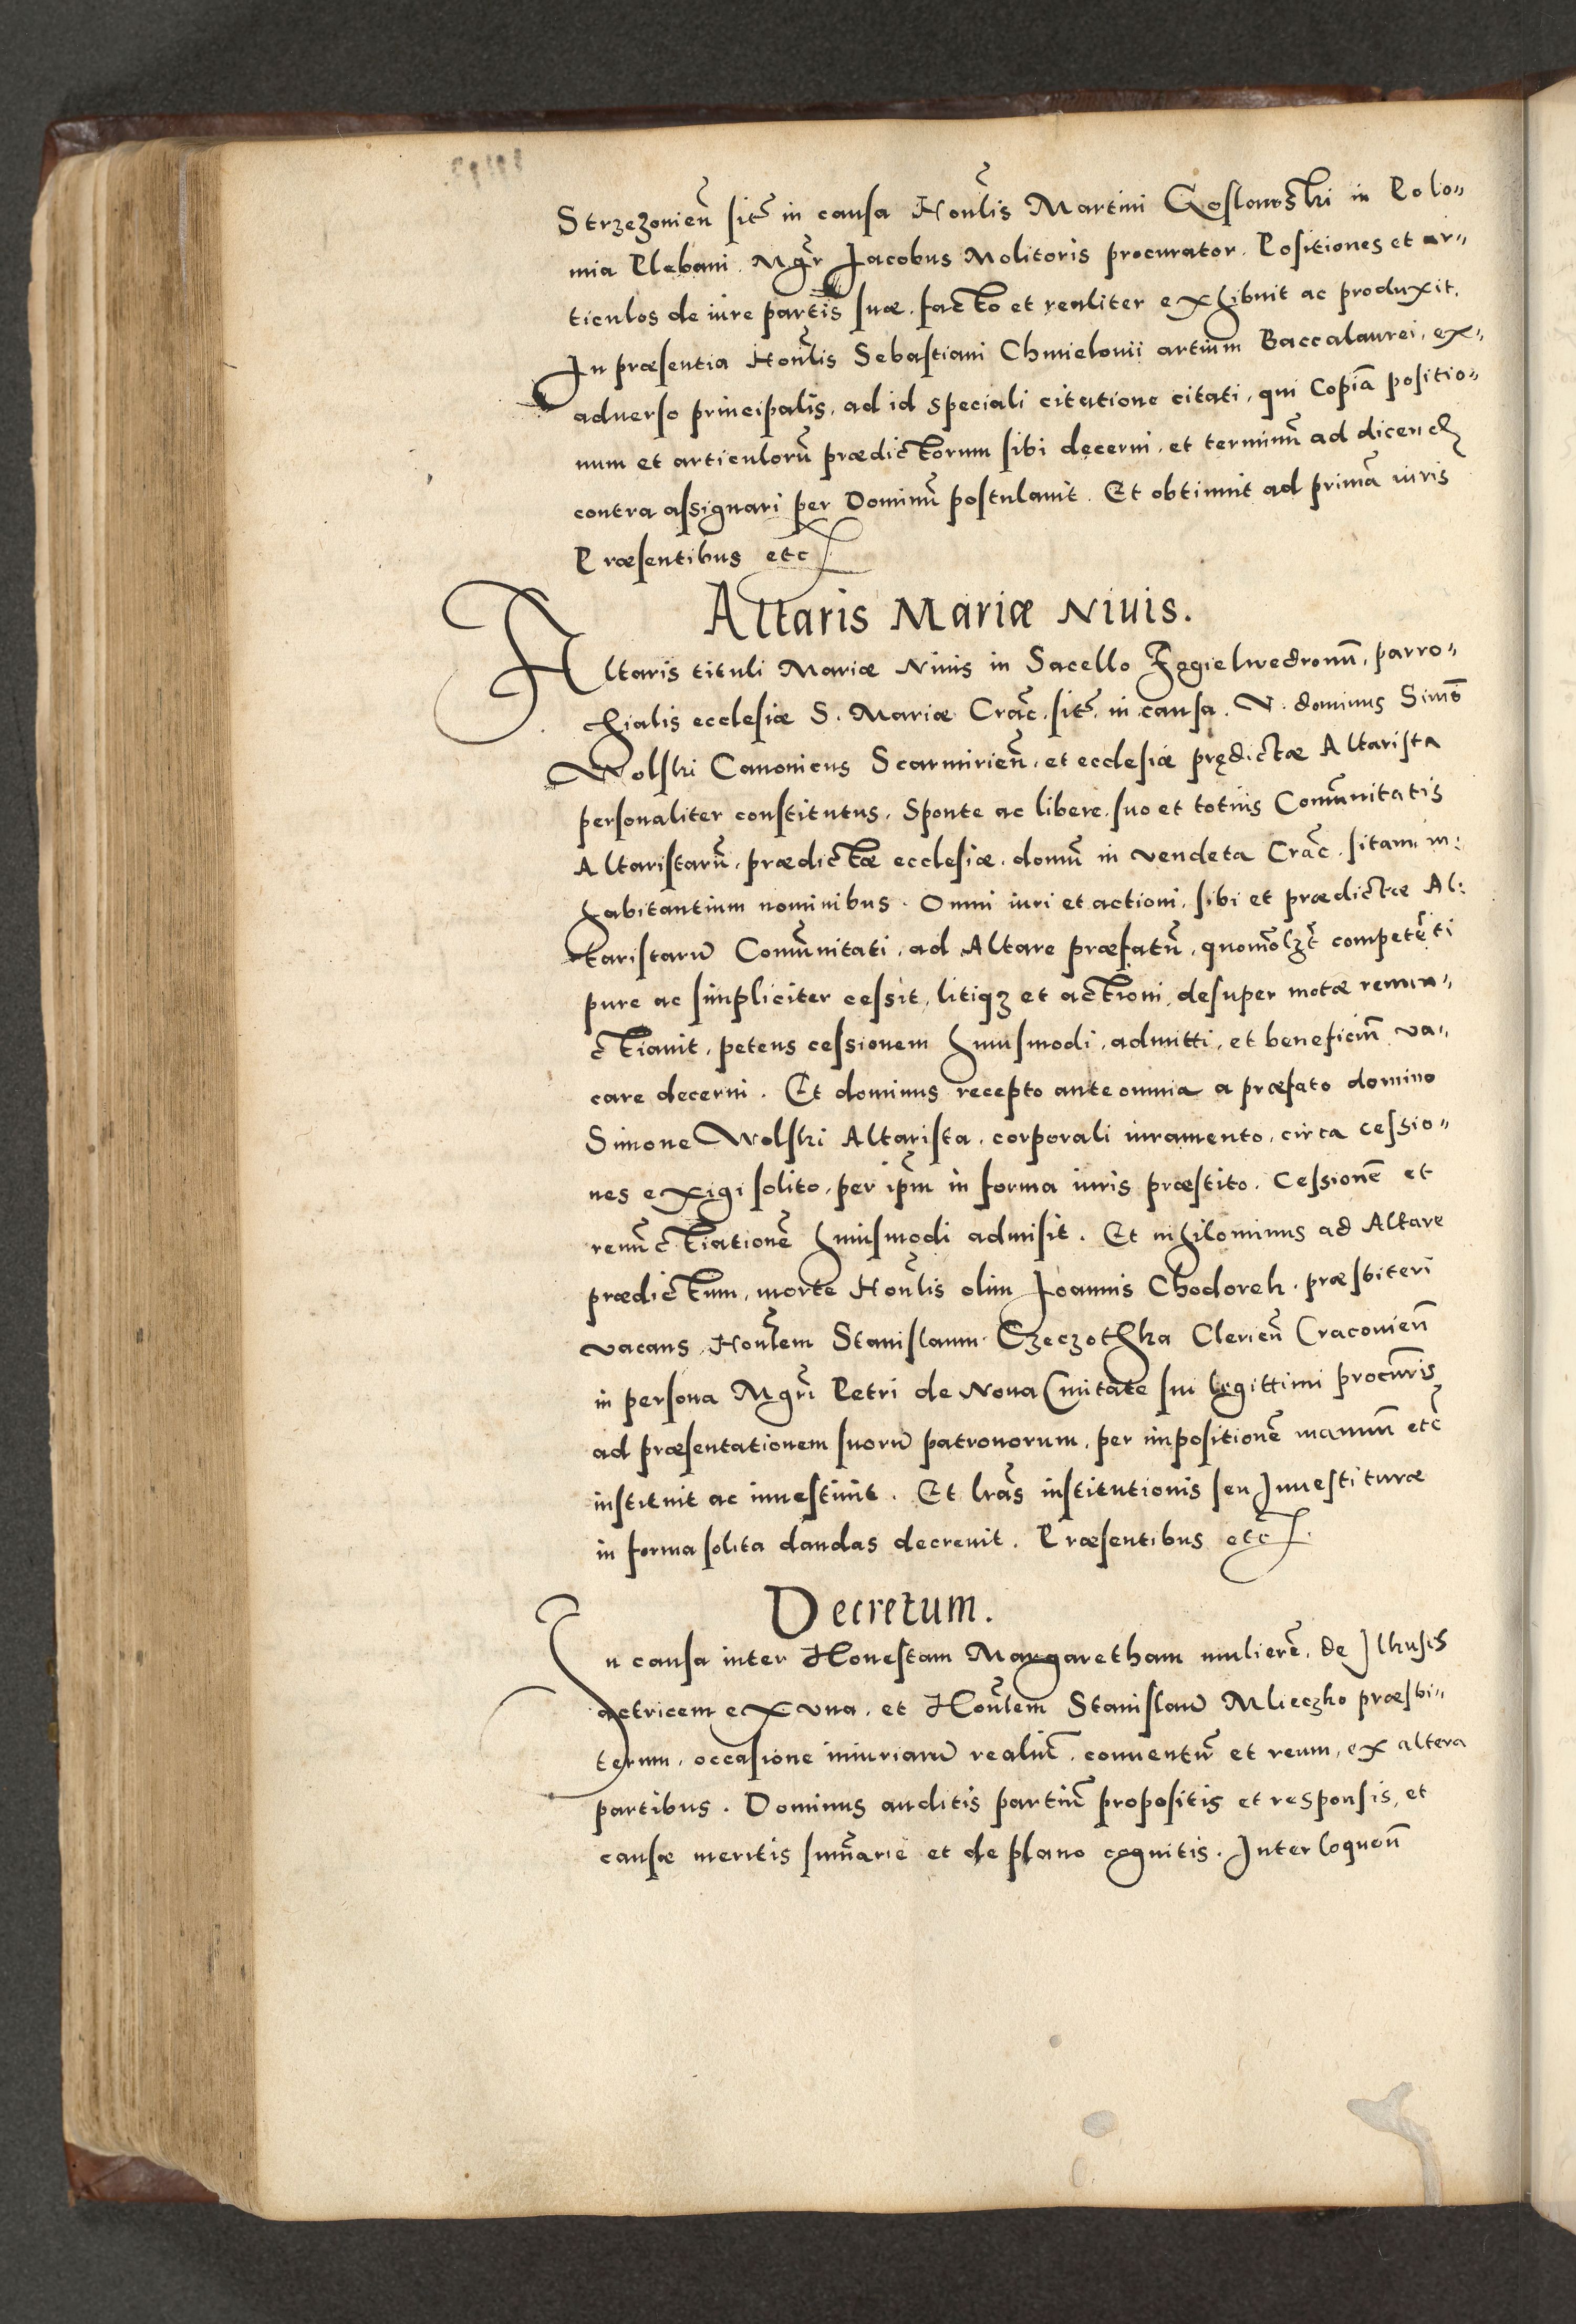 Strzezonieñ sit̃ in causa Honl̃is Martini Goslowski in Polo„
mia Plebani. Mgr̃ Jacobus Molitoris procurator. Positiones et ar„
ticulos de iure partis suæ. facto et realiter exhibuit ac produxit.
In præsentia Honl̃is Sebastiani Chmielovii artium Baccalaurei, ex„
aduerso principalis, ad id speciali citatione citati, qui Copiã positio„
num et articulorũ prædictorum sibi decerni, et terminũ ad dicend
contra assignari per Dominũ postulauit. Et obtinuit ad primã iuris
Præsentibus etc
Altaris Mariæ Niuis.
Altaris tituli Mariæ Niuis in Sacello Fegielwedronũ, parro„
chialis ecclesiæ S. Mariæ Crac̃. sit̃ in causa. V. dominus Simõ
Wolski Canonicus Scarmirieñ, et ecclesiæ prędictæ Altarista
personaliter constitutus, Sponte ac libere, suo et totius Com̃unitatis
Altaristarũ, prædictæ ecclesiæ, domũ in vendeta Crac̃. sitam in:
habitantium nominibus. Omni iuri et actioni, sibi et prædictæ Al:
taristarũ Com̃unitati, ad Altare præfatũ, quomolꝫt̃ competẽti
pure ac simpliciter cessit, litiqꝫ et actioni, desuper motæ renun„
ctiauit, petens cessionem huiusmodi, admitti, et beneficiũ va„
care decerni. Et dominus recepto ante omnia a præfato domino
Simone Wolski Altarista, corporali iuramento, circa cessio„
nes exigi solito, per ip̃m in forma iuris præstito. Cessionẽ et
renũctiationẽ huiusmodi admisit. Et nihilominus ad Altare
prædictum, morte Honl̃is olim Joannis Chodorek, præsbiteri
vacans, Honl̃em Stanislaum Czeczothka Clericũ Cracovieñ
in persona Mgr̃i Petri de Noua Ciuitate sui legittimi procur̃is,
ad præsentationem suorũ patronorum, per impositionẽ manuũ etc̃
instituit ac inuestiuit. Et lr̃as institutionis seu Inuestituræ
in forma solita dandas decreuit. Præsentibus etc̃
Decretum.
In causa inter Honestam Margaretham mulierẽ, de Ilkusis
actricem ex vna, et Honl̃em Stanislaũ Mlieczko præsbi„
terum, occasione iniuriarũ realiũ, conuentũ et reum, ex altera
partibus. Dominus auditis partiũ propositis et responsis, et
causæ meritis sum̃arie et de plano cognitis. Interloqueñ